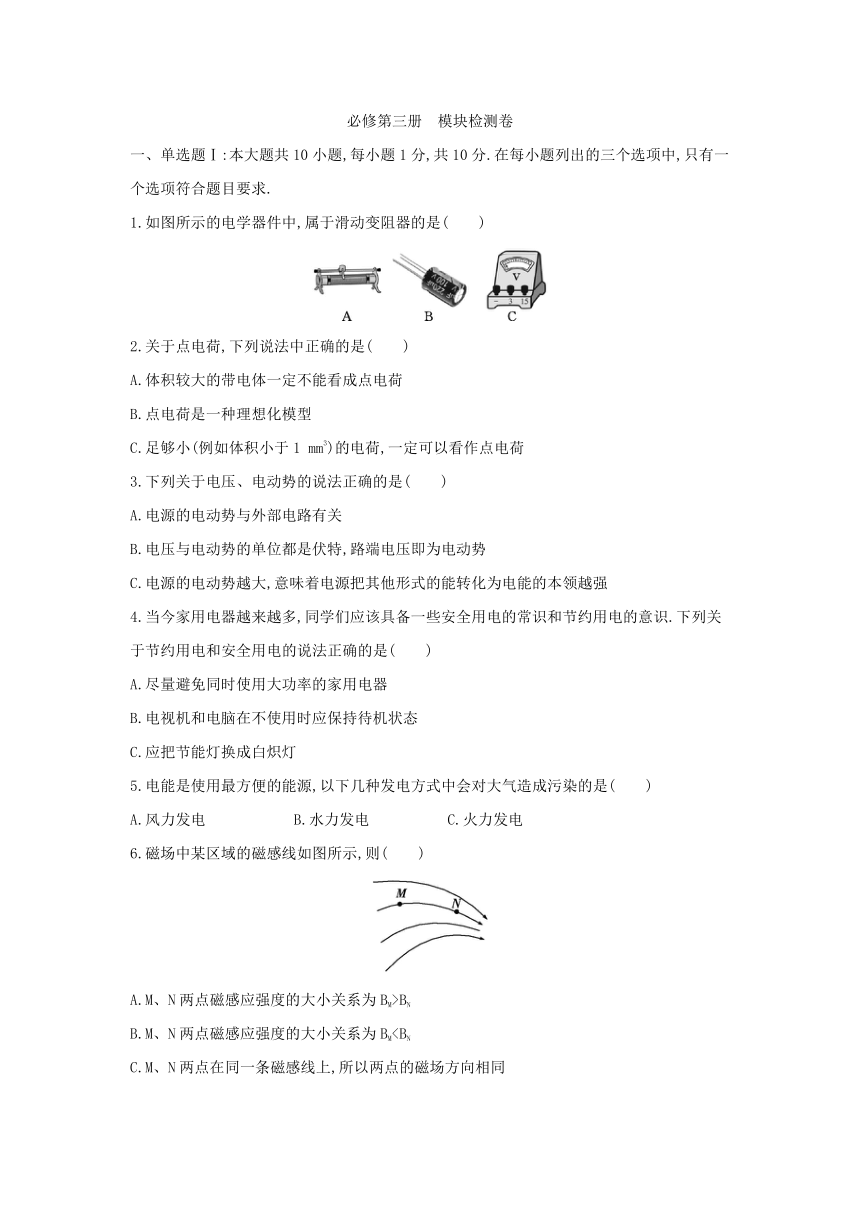 必修第三册　模块检测卷
一、单选题Ⅰ:本大题共10小题,每小题1分,共10分.在每小题列出的三个选项中,只有一
个选项符合题目要求.
1.如图所示的电学器件中,属于滑动变阻器的是(　　)
V
- 3 15
A B C
2.关于点电荷,下列说法中正确的是(　　)
A.体积较大的带电体一定不能看成点电荷
B.点电荷是一种理想化模型
C.足够小(例如体积小于1 mm³)的电荷,一定可以看作点电荷
3.下列关于电压、电动势的说法正确的是(　　)
A.电源的电动势与外部电路有关
B.电压与电动势的单位都是伏特,路端电压即为电动势
C.电源的电动势越大,意味着电源把其他形式的能转化为电能的本领越强
4.当今家用电器越来越多,同学们应该具备一些安全用电的常识和节约用电的意识.下列关
于节约用电和安全用电的说法正确的是(　　)
A.尽量避免同时使用大功率的家用电器
B.电视机和电脑在不使用时应保持待机状态
C.应把节能灯换成白炽灯
5.电能是使用最方便的能源,以下几种发电方式中会对大气造成污染的是(　　)
A.风力发电 B.水力发电 C.火力发电
6.磁场中某区域的磁感线如图所示,则(　　)
M
N
A.M、N两点磁感应强度的大小关系为B_M>B_N
B.M、N两点磁感应强度的大小关系为B_M<B_N
C.M、N两点在同一条磁感线上,所以两点的磁场方向相同